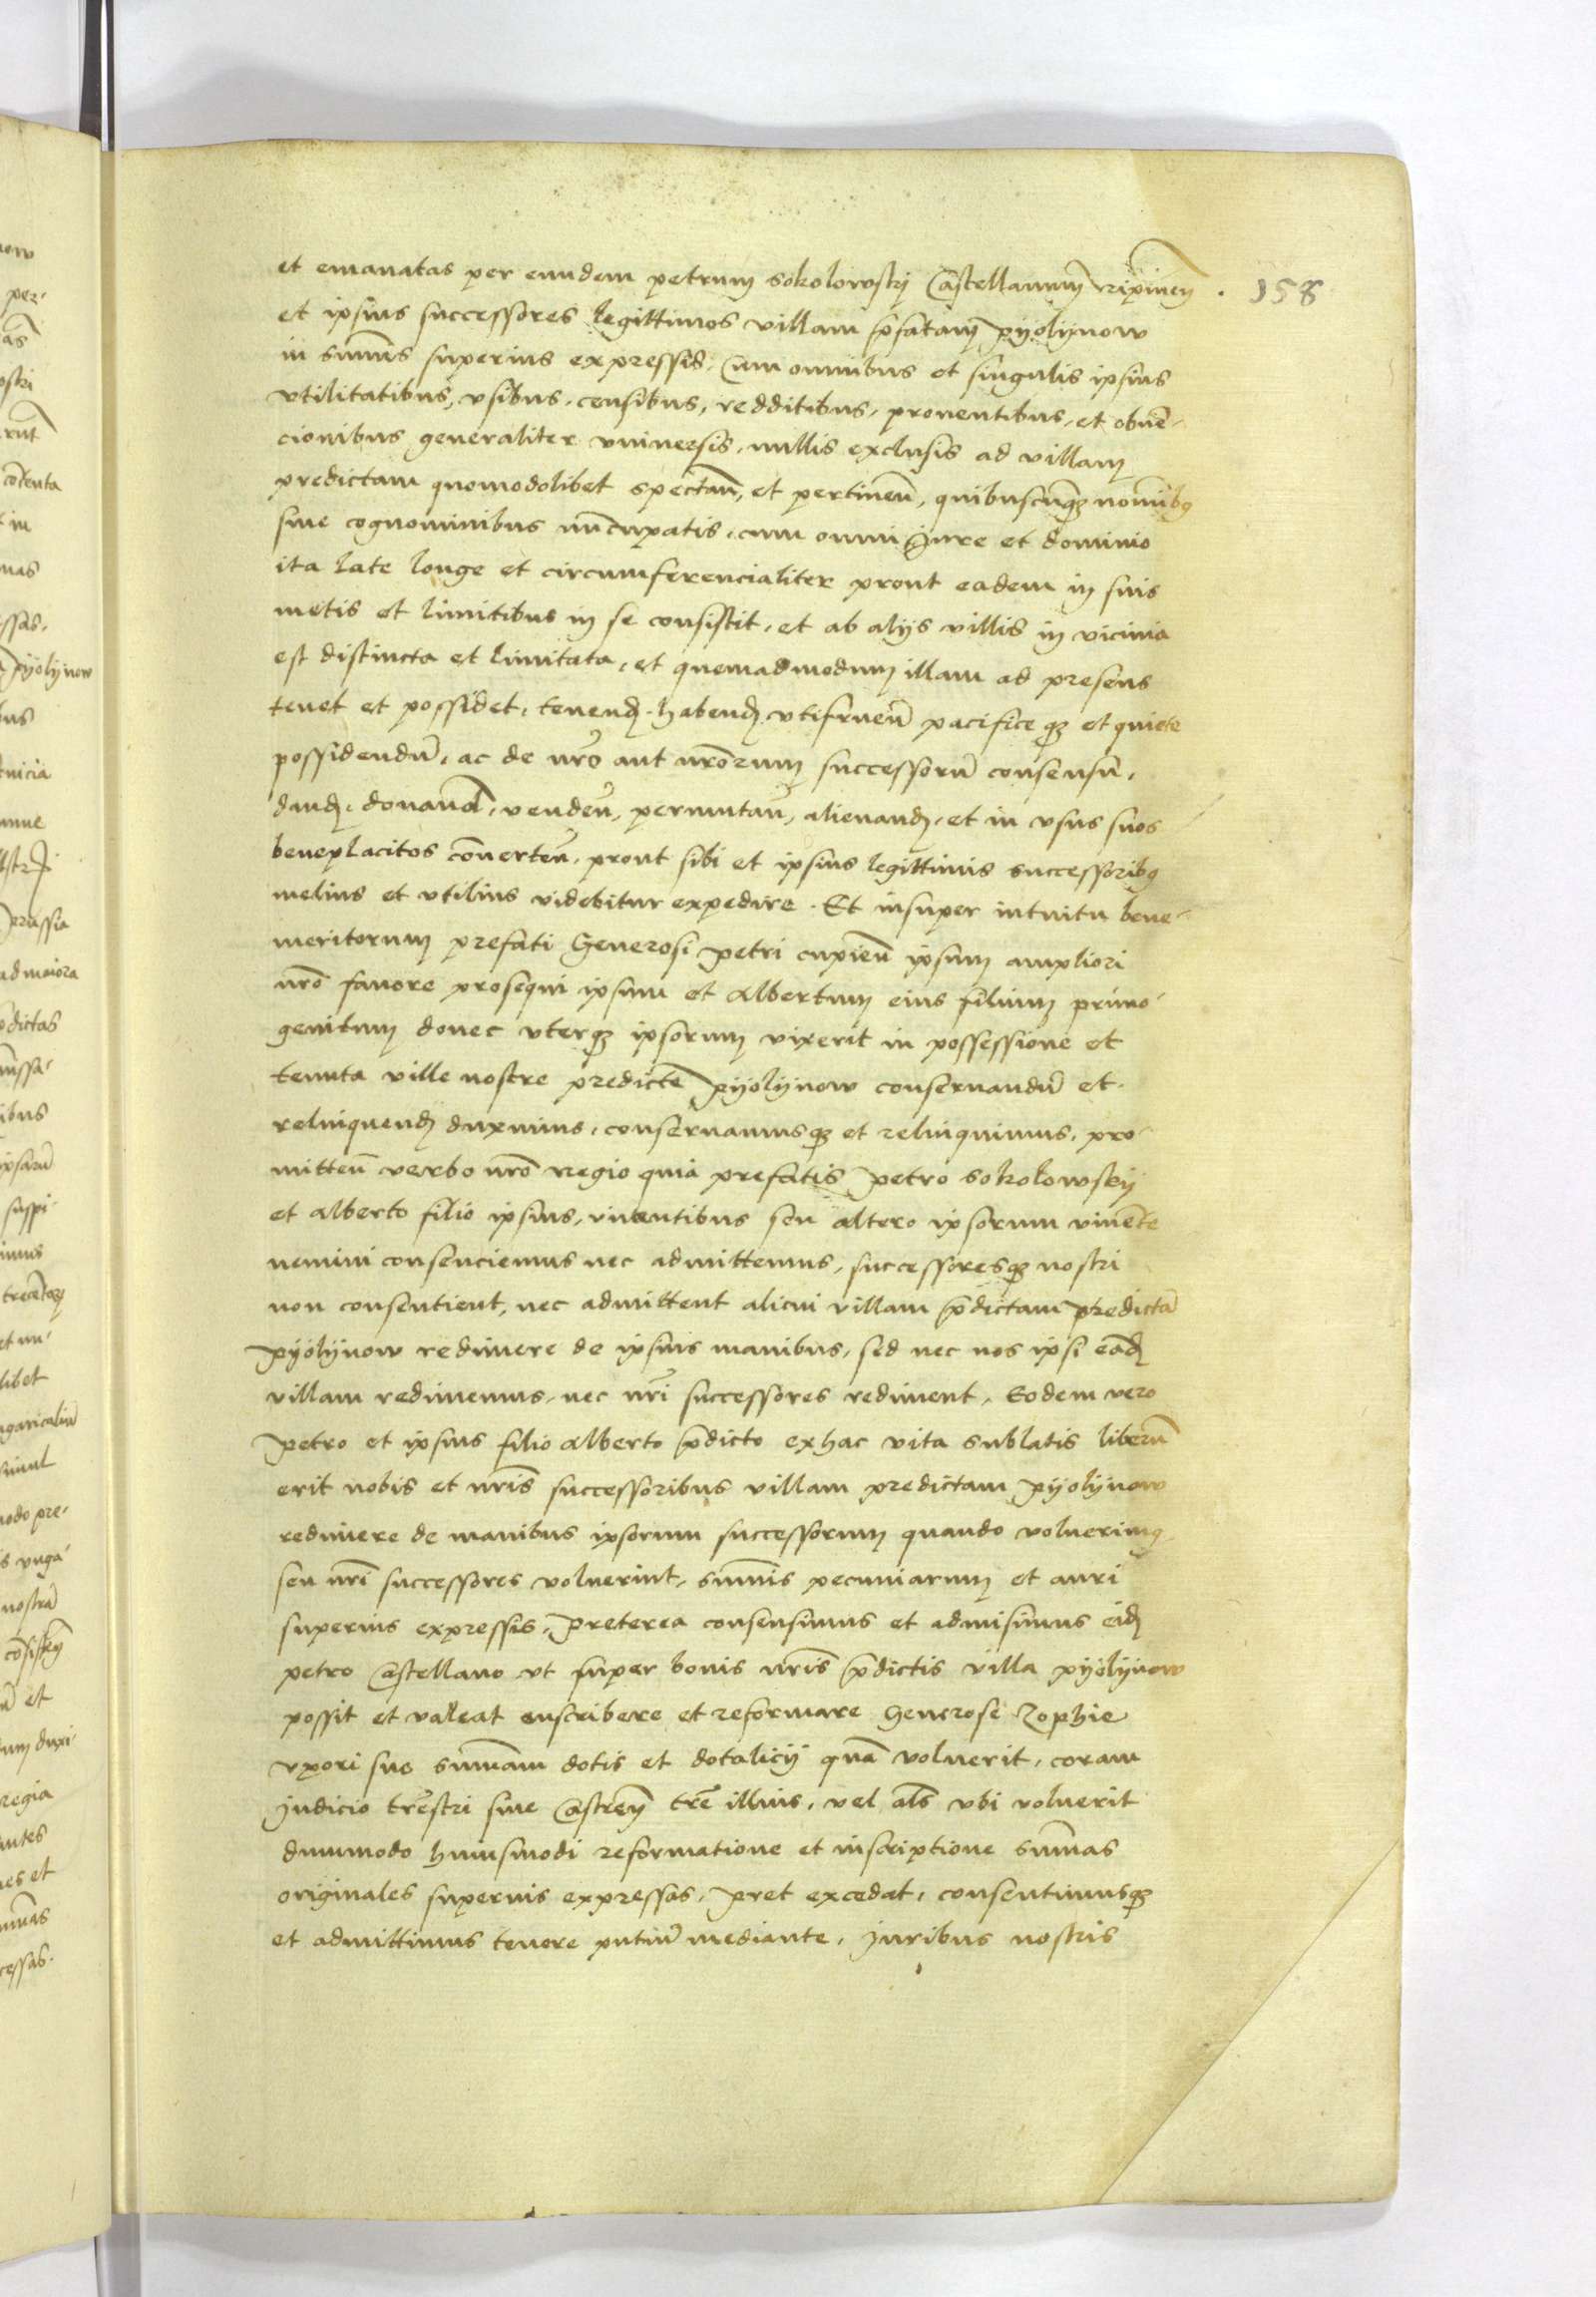 et emanatas per eundem petrum sokolowskj Castellanum ripineñ . 158
et ipsius successores legittimos villam p̃fatam pyolynow
in sum̃is superius expressis, Cum omnibus et singulis ipsius
vtilitatibus, vsibus, censibus, redditibus, prouentibus, et obuẽ-
cionibus generaliter vniuersis, nullis exclusis ad villam
predictam quomodolibet spectañ, et pertineñ, quibuscũqꝫ nominibꝰ
siue cognominibus nũcupatis, cum omni Jure et dominio
ita late longe et circumferencialiter prout eadem in suis
metis et limitibus in se consistit, et ab alijs villis in vicinia
est distincta et limitata, et quemadmodum illam ad presens
tenet et possidet, tenenđ habenđ vtifrueñ pacifice qꝫ et quiete
possidendũ, ac de nr̃o aut nr̃orum successorũ consensu,
danđ, donanđ, vendeñ, permutañ, alienanđ, et in vsus suos
beneplacitos cõuerteñ, prout sibi et ipsius legittimis successoribꝰ
melius et vtilius videbitur expedire . Et insuper intuitu bene-
meritorum prefati Generosi petri cupieñ ipsum ampliori
nr̃o fauore prosequi ipsum et Albertum eius filium primo-
genitum donec vterqꝫ ipsorum vixerit in possessione et
tenuta ville nostre predicte pyolynow conseruandũ et
relinquenđ duximus, conseruamusqꝫ et relinquimus, pro-
mitteñ verbo nr̃o regio quia prefatis petro sokolowskij
et Alberto filio ipsius, viuentibus seu altero ipsorum viuẽte
nemini consenciemus nec admittemus, successoresqꝫ nostri
non consentient, nec admittent alicui villam p̃dictam predictã
pyolynow redimere de ipsius manibus, sed nec nos ipsi eanđ
villam redimemus, nec nr̃i successores rediment, Eodem vero
petro et ipsius filio Alberto p̃dicto ex hac vita sublatis liberũ
erit nobis et nr̃is successoribus villam predictam pyolynow
redimere de manibus ipsorum successorum quando voluerimꝰ
seu nr̃i successores voluerint, sum̃is pecuniarum et auri
superius expressis, preterea consensimus et admisimus eiđ
petro Castellano vt super bonis nr̃is p̃dictis villa pyolynow
possit et valeat inscribere et reformare Generose Zophie
vxori sue sum̃am dotis et dotalicij quã voluerit, coram
Judicio trẽstri siue Castreñ trẽ illius, vel al̃s vbi voluerit
dummodo huiusmodi reformatione et inscriptione sum̃as
originales superius expressas, p̃ret excedat, consentimusqꝫ
et admittimus tenore pñtiũ mediante, Juribus nostris